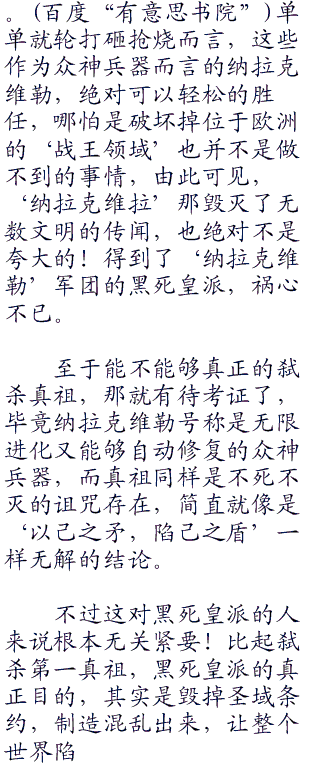 。(百度“有意思书院”)单
单就轮打砸抢烧而言，这些
作为众神兵器而言的纳拉克
维勒，绝对可以轻松的胜
任，哪怕是破坏掉位于欧洲
的‘战王领域’也并不是做
不到的事情，由此可见，
‘纳拉克维拉’那毁灭了无
数文明的传闻，也绝对不是
夸大的！得到了‘纳拉克维
勒’军团的黑死皇派，祸心
不已。
至于能不能够真正的弑
杀真祖，那就有待考证了，
毕竟纳拉克维勒号称是无限
进化又能够自动修复的众神
兵器，而真祖同样是不死不
灭的诅咒存在，简直就像是
‘以己之矛，陷己之盾’一
样无解的结论。
不过这对黑死皇派的人
来说根本无关紧要！比起弑
杀第一真祖，黑死皇派的真
正目的，其实是毁掉圣域条
约，制造混乱出来，让整个
世界陷